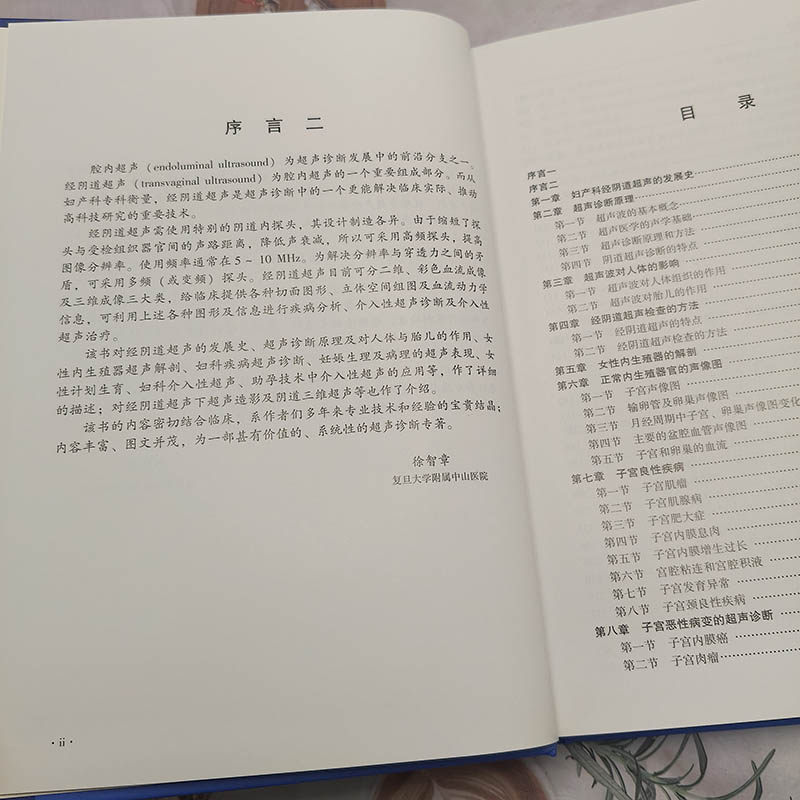 序言二
腔内超声（endoluminal ultrasound）为超声诊断发展中的前沿分支之一。
经阴道超声（transvaginal ultrasound）为腔内超声的一个重要组成部分。而从
妇产科专科衡量，经阴道超声是超声诊断中的一个更能解决临床实际、推动
高科技研究的重要技术。
经阴道超声需使用特别的阴道内探头，其设计制造各异。由于缩短了探
头与受检组织器官间的声路距离，降低声衰减，所以可采用高频探头，提高
图像分辨率。使用频率通常在5～10 MHz。为解决分辨率与穿透力之间的矛
盾，可采用多频（或变频）探头。经阴道超声目前可分二维、彩色血流成像
及三维成像三大类，给临床提供各种切面图形、立体空间组图及血流动力学
信息，可利用上述各种图形及信息进行疾病分析、介入性超声诊断及介入性
超声治疗。
该书对经阴道超声的发展史、超声诊断原理及对人体与胎儿的作用、女
性内生殖器超声解剖、妇科疾病超声诊断、妊娠生理及病理的超声表现、女
性计划生育、妇科介入性超声、助孕技术中介入性超声的应用等，作了详细
的描述；对经阴道超声下超声造影及阴道三维超声等也作了介绍。
该书的内容密切结合临床，系作者们多年来专业技术和经验的宝贵结晶；
内容丰富、图文并茂，为一部甚有价值的、系统性的超声诊断专著。
徐智章
复旦大学附属中山医院
· ii ·
目录
序言一
序言二
第一章 妇产科经阴道超声的发展史
第二章 超声诊断原理
第一节 超声波的基本概念
第二节 超声医学的声学基础
第三节 超声诊断原理和方法
第四节 阴道超声诊断的特点
第三章 超声波对人体的影响
第一节 超声波对人体组织的作用
第二节 超声波对胎儿的作用
第四章 经阴道超声检查的方法
第一节 经阴道超声的特点
第二节 经阴道超声检查的方法
第五章 女性内生殖器的解剖
第六章 正常内生殖器官的声像图
第一节 子宫声像图
第二节 输卵管及卵巢声像图
第三节 月经周期中子宫、卵巢声像图变化
第四节 主要的盆腔血管声像图
第五节 子宫和卵巢的血流
第七章 子宫良性疾病
第一节 子宫肌瘤
第二节 子宫肌腺病
第三节 子宫肥大症
第四节 子宫内膜息肉
第五节 子宫内膜增生过长
第六节 宫腔粘连和宫腔积液
第七节 子宫发育异常
第八节 子宫颈良性疾病
第八章 子宫恶性病变的超声诊断
第一节 子宫内膜癌
第二节 子宫肉瘤